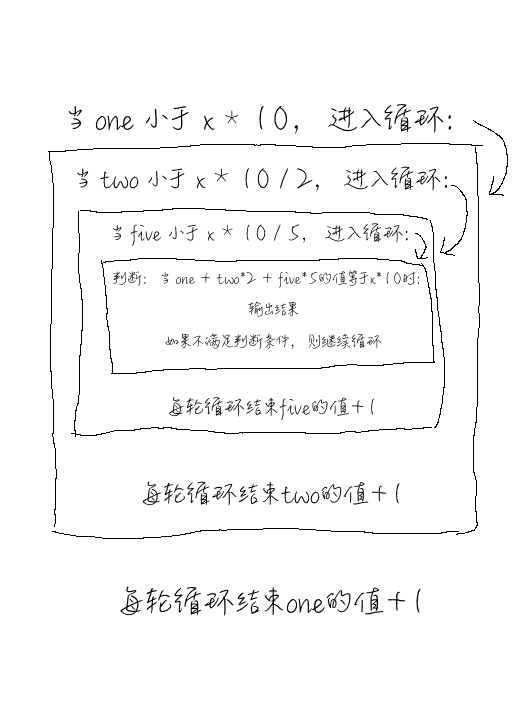 当one小于x*10，进入循环：
当two小于x*10/2，进入循环：
当five小于x*10/5，进入循环：
判断：当one+two*2+five*5的值等于x*10时：
输出结果
如果不满足判断条件，则继续循环
每轮循环结束five的值+1
每轮循环结束two的值+1
每轮循环结束one的值+1